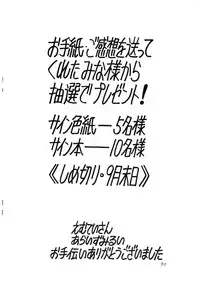 お手紙・ご感想を送って
くれたみな様から
抽選でプレゼント!
サイン色紙──5名様
サイン本──10名様
《しめ切り・9月末日》
えむていさん
あらいずみるい
お手伝いありがとうございました